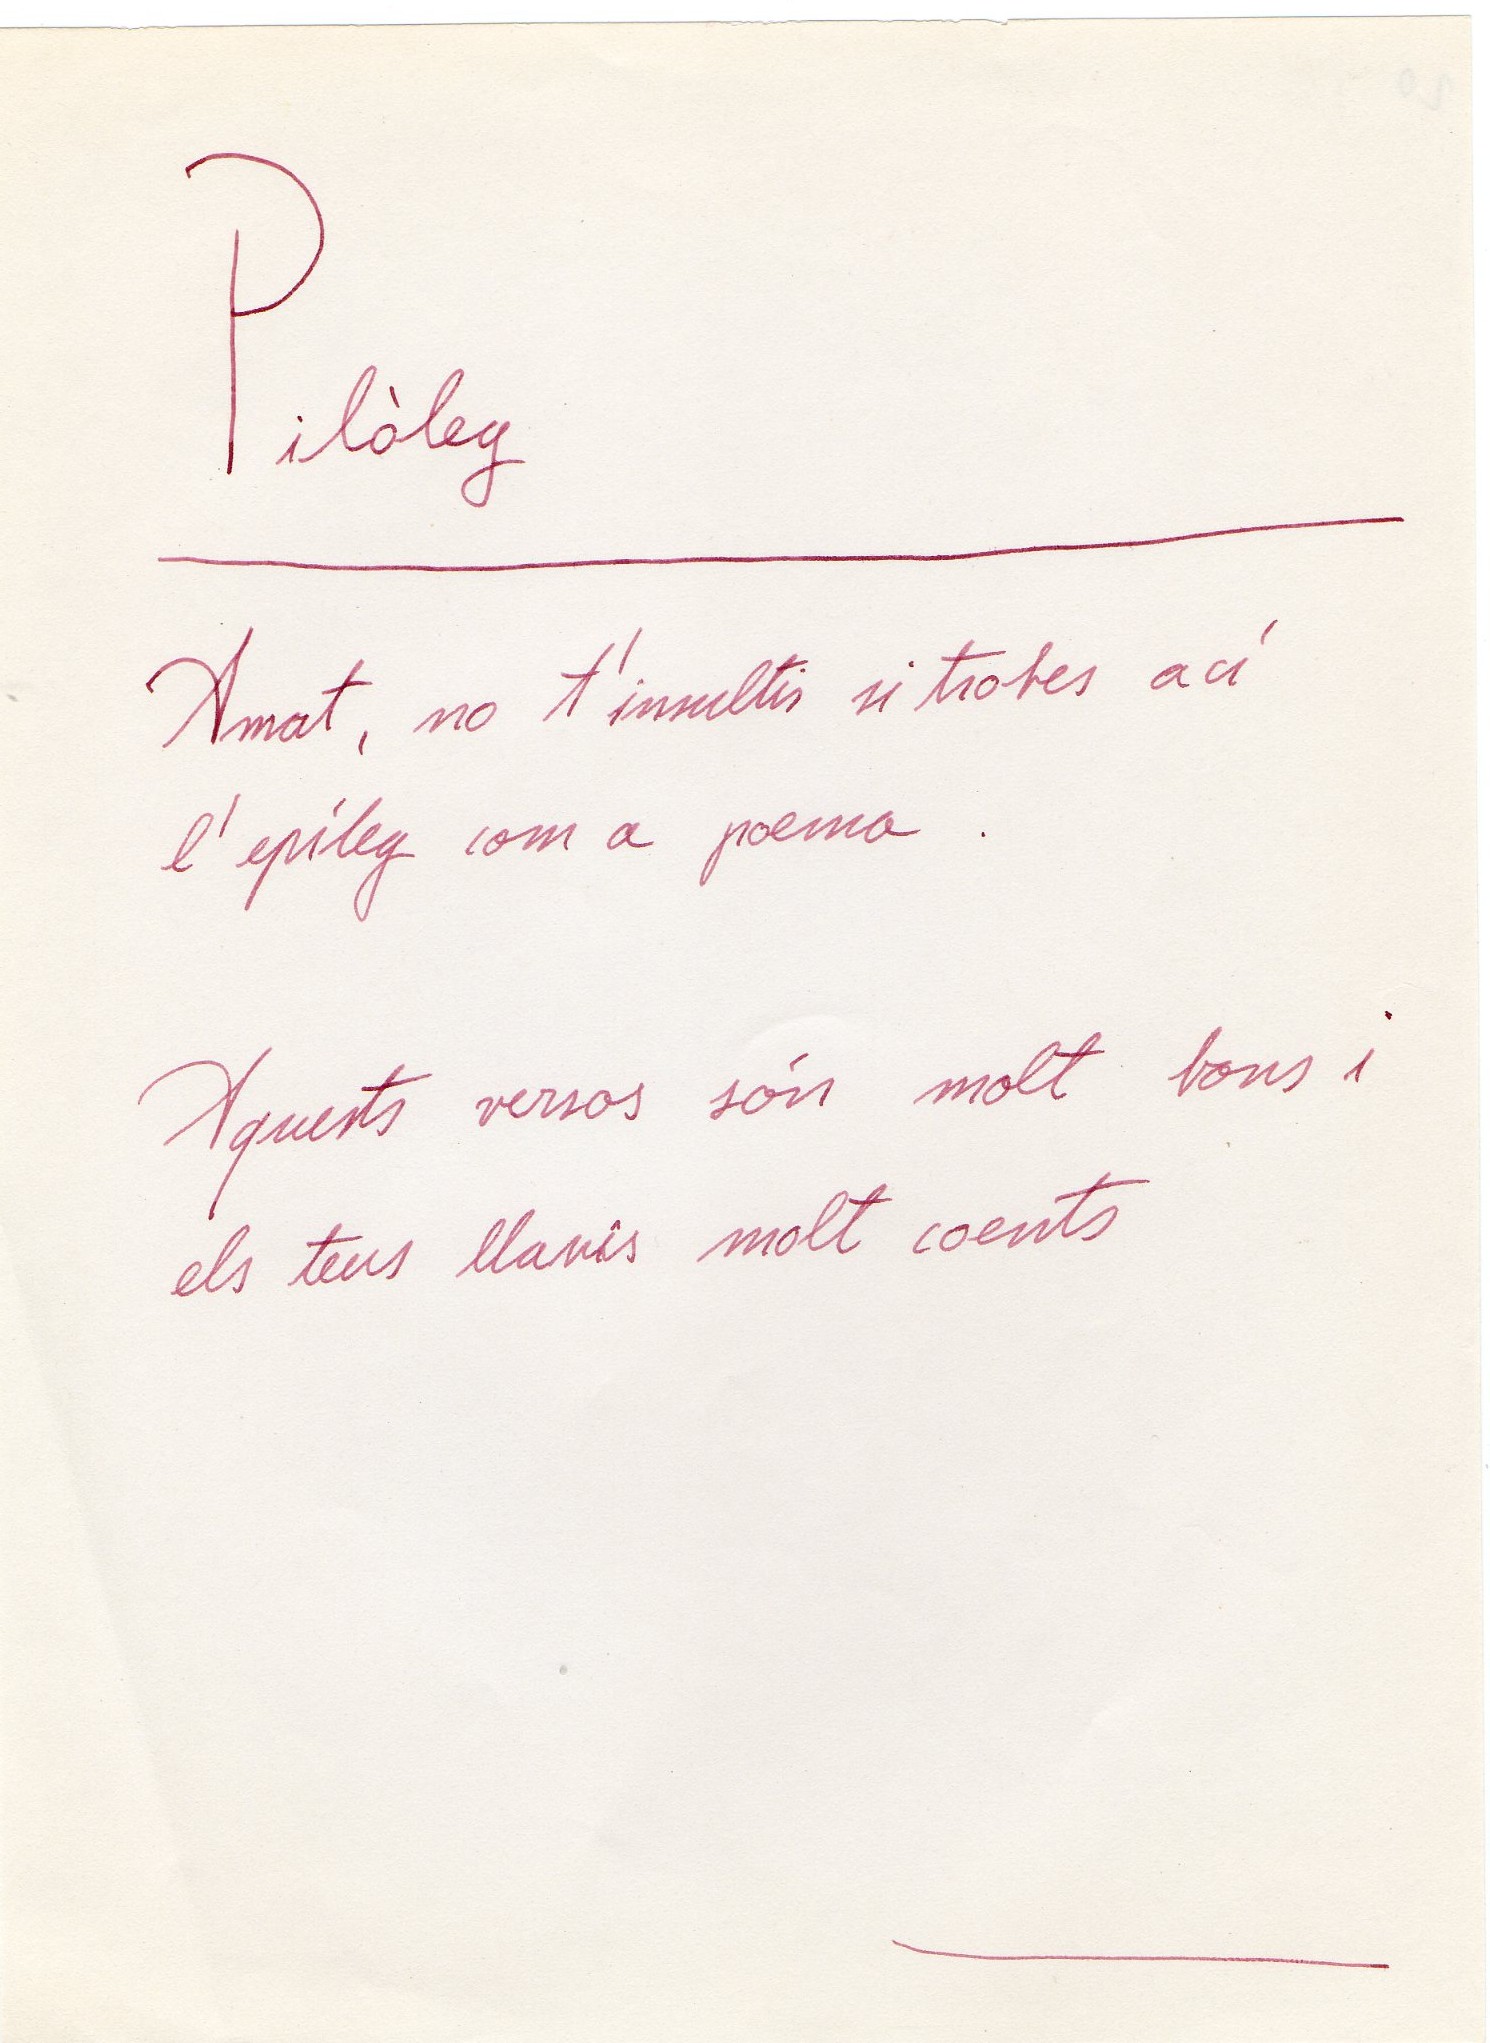 Pilòleg
Amat, no t'insultis si trobes ací
l'epíleg com a poema.
Aquests versos són molt bons i
els teus llavis molt coents